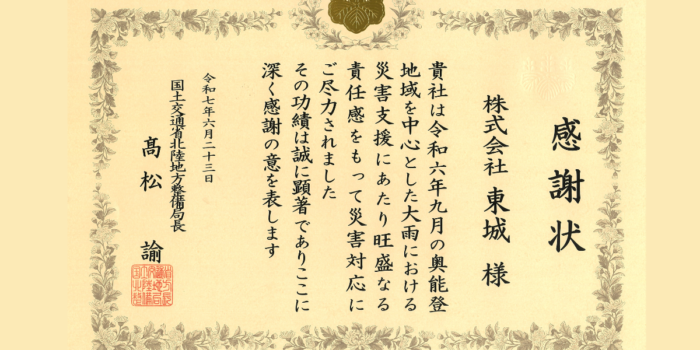 感謝状
株式会社 東城 様
貴社は令和六年九月の奥能登
地域を中心とした大雨における
災害支援にあたり旺盛なる
責任感をもって災害対応に
ご尽力されました
その功績は誠に顕著でありここに
深く感謝の意を表します
令和七年六月二十三日
国土交通省北陸地方整備局長
髙松 諭